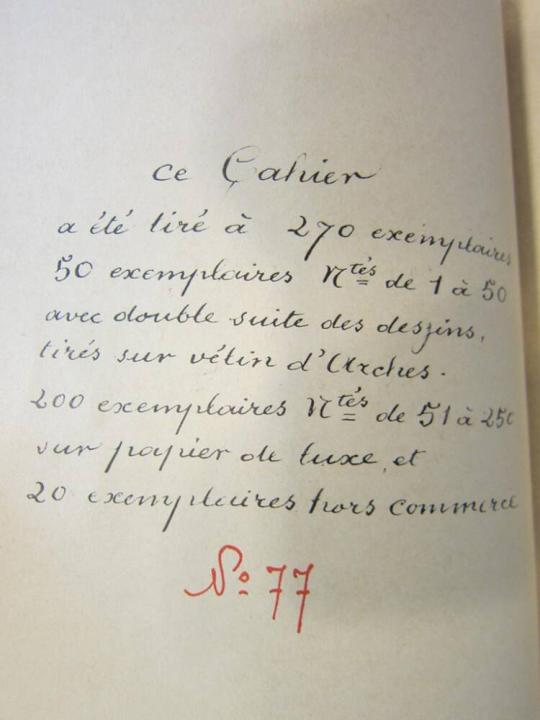 ce Cahier
a été tiré à 270 exemplaires
50 exemplaires Ntés de 1 à 50
avec double suite des dessins,
tirés sur vélin d'Arches.
200 exemplaires Ntés de 51 à 250
sur papier de luxe, et
20 exemplaires hors commerce
No 77